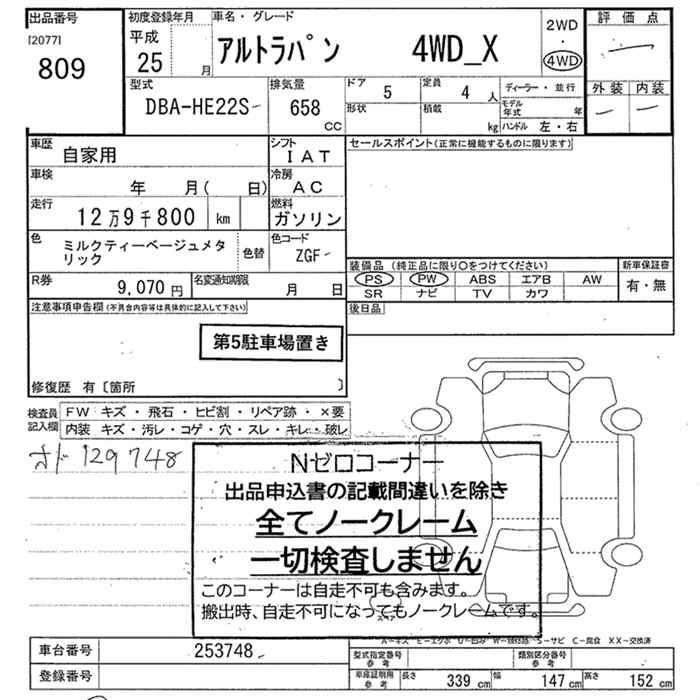 出品番号
[2077]
809
初度登録年月
平成
25 月
車名・グレード
アルトラパン 4WD_X
2WD
・
4WD
評価点
外装 内装
型式
DBA-HE22S
排気量
658
CC
ドア 5
定員 4 人
形状
積載 kg
ディーラー・並行
モデル年式 年
ハンドル 左・右
車歴
自家用
シフト
IAT
車検
年 月( 日)
冷房
AC
走行
12万9千800 km
燃料
ガソリン
色
ミルクティーベージュメタ
リック
色替
色コード
ZGF
R券
9,070円
名変通知期限
月 日
セールスポイント(正常に機能するものに限ります)
装備品(純正品に限り○をつけてください)
PS PW ABS エアB AW
SR ナビ TV カワ
新車保証書
有・無
後日品
注意事項申告欄(不具合内容等は具体的に記入して下さい)
第5駐車場置き
修復歴 有〔箇所 〕
検査員
記入欄
FW キズ・飛石・ヒビ割・リペア跡・×要
内装 キズ・汚レ・コゲ・穴・スレ・キレ・破レ
129748
Nゼロコーナー
出品申込書の記載間違いを除き
全てノークレーム
一切検査しません
このコーナーは自走不可も含みます。
搬出時、自走不可になってもノークレームです。
A-キズ E-エクボ U-凹み W-補修跡 S-サビ C-腐食 XX-交換済
車台番号
253748
登録番号
型式指定番号
参考
類別区分番号
参考
車庫証明用
参考
長さ 339 cm
幅 147 cm
高さ 152 cm